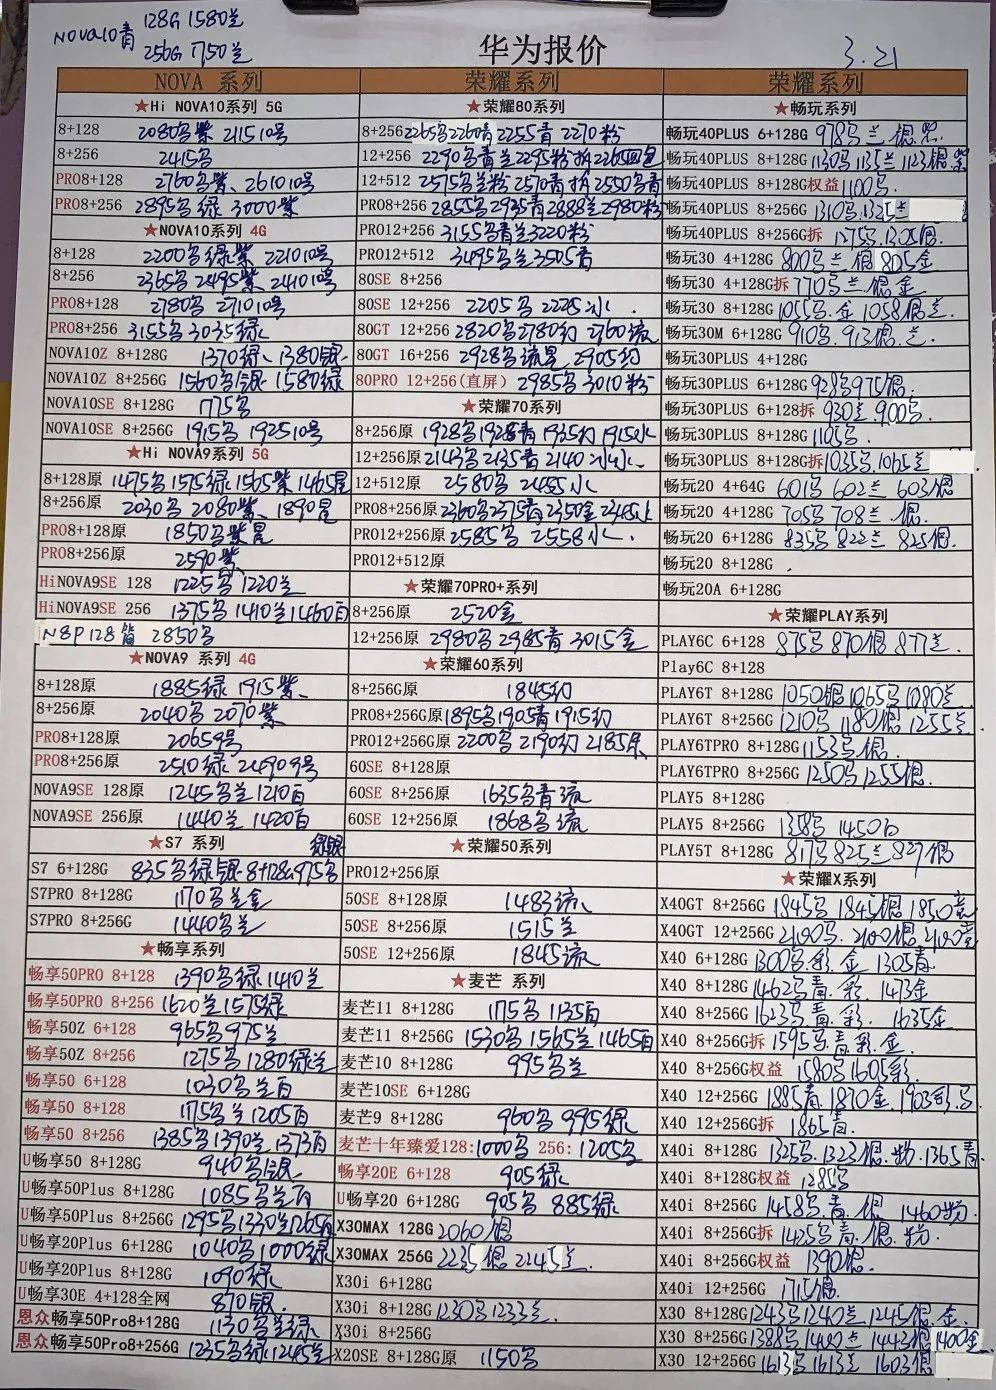 NOVA10青 128G 1580兰
256G 1750兰
华为报价
3.21
NOVA 系列
★Hi NOVA10系列 5G
8+128 2080乌紫 2115 10号
8+256 2415乌
PRO8+128 2760乌紫、2610 10号
PRO8+256 2895乌绿 3000紫
★NOVA10系列 4G
8+128 2200乌绿紫 2210 10号
8+256 2365乌 2495紫 2410 10号
PRO8+128 2780乌 2710 10号
PRO8+256 3155乌 3035绿
NOVA10Z 8+128G 1370绿、1380银
NOVA10Z 8+256G 1560乌银 1580绿
NOVA10SE 8+128G 1775乌
NOVA10SE 8+256G 1915乌 1925 10号
★Hi NOVA9系列 5G
8+128原 1475乌 1575绿 1565紫 1465星
8+256原 2030乌 2080紫、1890星
PRO8+128原 1850乌紫星
PRO8+256原 2590紫
HiNOVA9SE 128 1225乌 1220兰
HiNOVA9SE 256 1375乌 1410兰 1460白
N8P128 2850乌
★NOVA9 系列 4G
8+128原 1885绿 1915紫
8+256原 2040乌 2070紫
PRO8+128原 2065 9号
PRO8+256原 2510绿 2490 9号
NOVA9SE 128原 1245乌兰 1210白
NOVA9SE 256原 1440兰 1420白
★S7 系列 绿银
S7 6+128G 835乌绿银 8+128G 975乌
S7PRO 8+128G 1170乌兰金
S7PRO 8+256G 1440乌兰
★畅享系列
畅享50PRO 8+128 1390乌绿 1410兰
畅享50PRO 8+256 1620兰 1575绿
畅享50Z 6+128 965乌 975兰
畅享50Z 8+256 1275乌 1280绿兰
畅享50 6+128 1030乌兰白
畅享50 8+128 1175乌兰 1205白
畅享50 8+256 1385乌 1390兰 1373白
U畅享50 8+128G 940乌银
U畅享50Plus 8+128G 1085乌兰白
U畅享50Plus 8+256G 1295乌 1330兰 1265白
U畅享20Plus 6+128G 1040乌 1000绿
U畅享20Plus 8+128G 1090绿
U畅享30E 4+128全网 870银
恩众畅享50Pro8+128G 1130乌兰绿
恩众畅享50Pro8+256G 1235乌绿 1245兰
荣耀系列
★荣耀80系列
8+256 2265乌 2260青 2255青 2270粉
12+256 2290乌青兰 2295粉 拆2265四色
12+512 2575乌兰粉 2570青 拆2550乌青
PRO8+256 2855乌 2935青 2888兰 2980粉
PRO12+256 3155乌青兰 3220粉
PRO12+512 3495乌兰 3505青
80SE 8+256
80SE 12+256 2205乌 2225水
80GT 12+256 2820乌 2780幻 2760流
80GT 16+256 2928乌流星 2905幻
80PRO 12+256(直屏) 2985乌 3010粉
★荣耀70系列
8+256原 1928乌 1928青 1935幻 1915水
12+256原 2143乌 2135青 2140冰水
12+512原 2580乌 2455水
PRO8+256原 2360乌 2375青 2350金 2345水
PRO12+256原 2585乌 2558水
PRO12+512原
★荣耀70PRO+系列
8+256原 2520金
12+256原 2980乌 2985青 3015金
★荣耀60系列
8+256G原 1845幻
PRO8+256G原 1895乌 1905青 1915幻
PRO12+256G原 2200乌 2190幻 2185朱
60SE 8+128原
60SE 8+256原 1635乌青流
60SE 12+256原 1868乌流
★荣耀50系列
PRO12+256原
50SE 8+128原 1483流
50SE 8+256原 1515兰
50SE 12+256原 1845流
★麦芒 系列
麦芒11 8+128G 1175乌 1135白
麦芒11 8+256G 1530乌 1565兰 1465白
麦芒10 8+128G 995乌兰
麦芒10SE 6+128G
麦芒9 8+128G 960乌 995绿
麦芒十年臻爱128:1000乌 256:1205乌
畅享20E 6+128 905绿
U畅享20 6+128G 905乌 885绿
X30MAX 128G 2060银
X30MAX 256G 2235银 2245兰
X30i 6+128G
X30i 8+128G 1230乌 1233兰
X30i 8+256G
X20SE 8+128G原 1150乌
荣耀系列
★畅玩系列
畅玩40PLUS 6+128G 978乌兰银紫
畅玩40PLUS 8+128G 1130乌 1135兰 1123银紫
畅玩40PLUS 8+128G权益 1100乌
畅玩40PLUS 8+256G 1310乌 1325兰
畅玩40PLUS 8+256G拆 1275乌 1305银
畅玩30 4+128G 800乌兰银 805金
畅玩30 4+128G拆 770乌兰银金
畅玩30 8+128G 1055乌金 1058银兰
畅玩30M 6+128G 910乌 913银兰
畅玩30PLUS 4+128G
畅玩30PLUS 6+128G 928乌 975银
畅玩30PLUS 6+128拆 930兰 900乌
畅玩30PLUS 8+128G 1105乌
畅玩30PLUS 8+128G拆 1035乌 1065兰
畅玩20 4+64G 601乌 602兰 603银
畅玩20 4+128G 705乌 708兰银
畅玩20 6+128G 835乌 822兰 825银
畅玩20 8+128G
畅玩20A 6+128G
★荣耀PLAY系列
PLAY6C 6+128 875乌 870银 877兰
Play6C 8+128
PLAY6T 8+128G 1050银 1065乌 1080兰
PLAY6T 8+256G 1210乌 1180银 1255兰
PLAY6TPRO 8+128G 1153乌银
PLAY6TPRO 8+256G 1250乌 1255银
PLAY5 8+128G
PLAY5 8+256G 1358乌 1450白
PLAY5T 8+128G 817乌 825兰 827银
★荣耀X系列
X40GT 8+256G 1845乌 1845银 1850竞
X40GT 12+256G 2100乌 2100银 2100竞
X40 6+128G 1300乌彩金 1305青
X40 8+128G 1462乌青彩 1473金
X40 8+256G 1623乌青彩 1635金
X40 8+256G拆 1595乌青彩金
X40 8+256G权益 1580乌 1605彩
X40 12+256G 1885青 1870金 1903彩乌
X40 12+256G拆 1865青
X40i 8+128G 1325乌 1323银粉 1365青
X40i 8+128G权益 1285乌
X40i 8+256G 1458乌青银 1460粉
X40i 8+256G拆 1425乌青银粉
X40i 8+256G权益 1390银
X40i 12+256G 1715银
X30 8+128G 1243乌 1240兰 1245银金
X30 8+256G 1388乌 1400兰 1443银 1400金
X30 12+256G 1613乌 1613兰 1603银